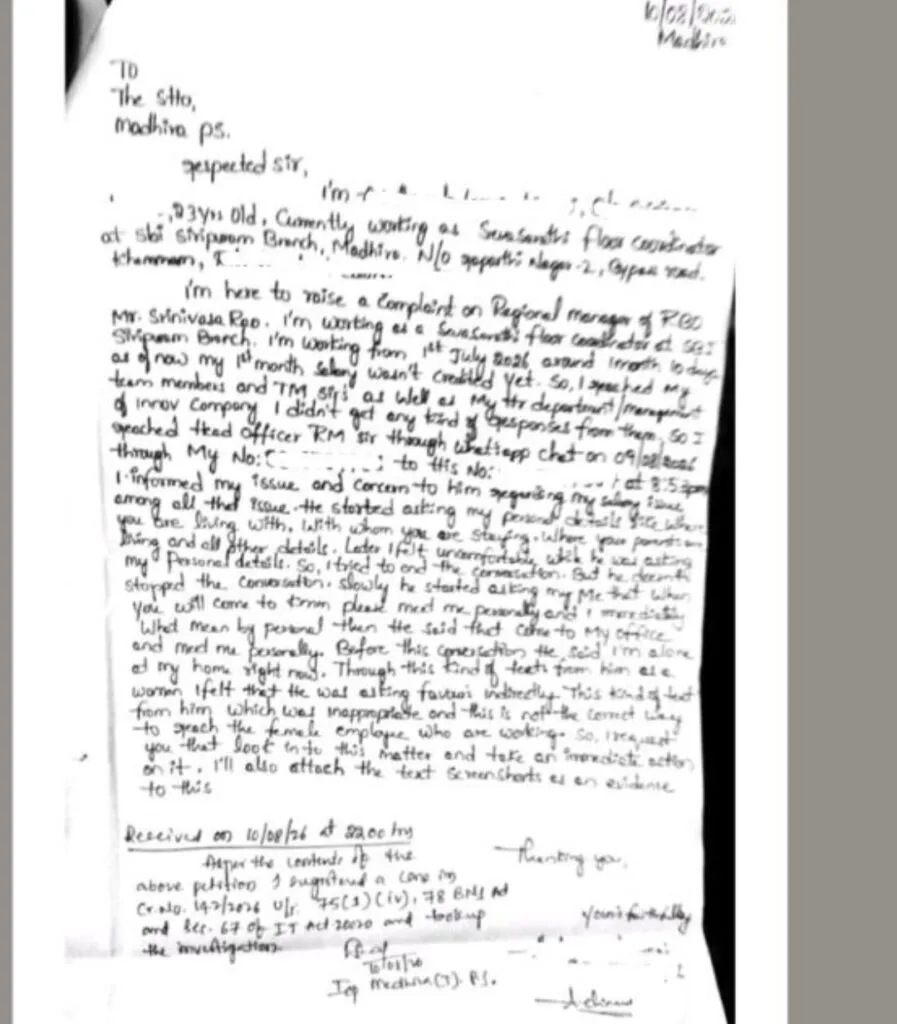 10/08/202
Madhira
To
The SHO,
Madhira PS.
respected sir,
I'm
, 23 yrs old, Currently working as Sevasarathi floor coordinator
at sbi siripuram Branch, Madhira. N/o Nagar-2, Bypass road.
Khammam,
i'm here to raise a Complaint on Regional manager of RBO
Mr. Srinivasa Rao. I'm working as a Sevasarathi floor coordinator at SBI
Siripuram Branch. I'm working from 1st July 2026 around 1month 10 days
as of now my 1st month salary wasn't credited yet. So, I reached my
team members and TM sir's as well as My Hr department/management
of innov Company I didn't get any kind of responses from them, so I
reached Head officer RM sir through whatsapp chat on 09/08/2026
through My No: to His No: at 8:53pm
I informed my issue and concern to him regarding my salary issue
among all that issue. He started asking my personal details like where
you are living with. With whom you are staying. Where your parents are
living and all other details. Later I felt uncomfortable while he was asking
my Personal details. So, I tried to end the conversation. But he doesnt
stopped the conversation. Slowly he started asking my Me that when
You will come to kmm please meet me personally and I immediately
What mean by personal then He said that come to My office
and meet me personally. Before this conversation He said I'm alone
at my home right now. Through this kind of texts from him as a
women I felt that He was asking favours indirectly. This kind of text
from him which was inappropriate and this is not the correct way
to reach the female employee who are working. So, I request
you that look into this matter and take an immediate action
on it. I'll also attach the text screenshorts as an evidence
to this
Received on 10/08/26 at 2200 hrs
As per the contents of the
above petition I registered a case in
Cr.No. 147/2026 U/s. 75(1)(iv), 78 BNS Act
and Sec. 67 of IT Act 2000 and took up
the investigation.
Thanking you,
your's faithfully
Madhira (T). PS.